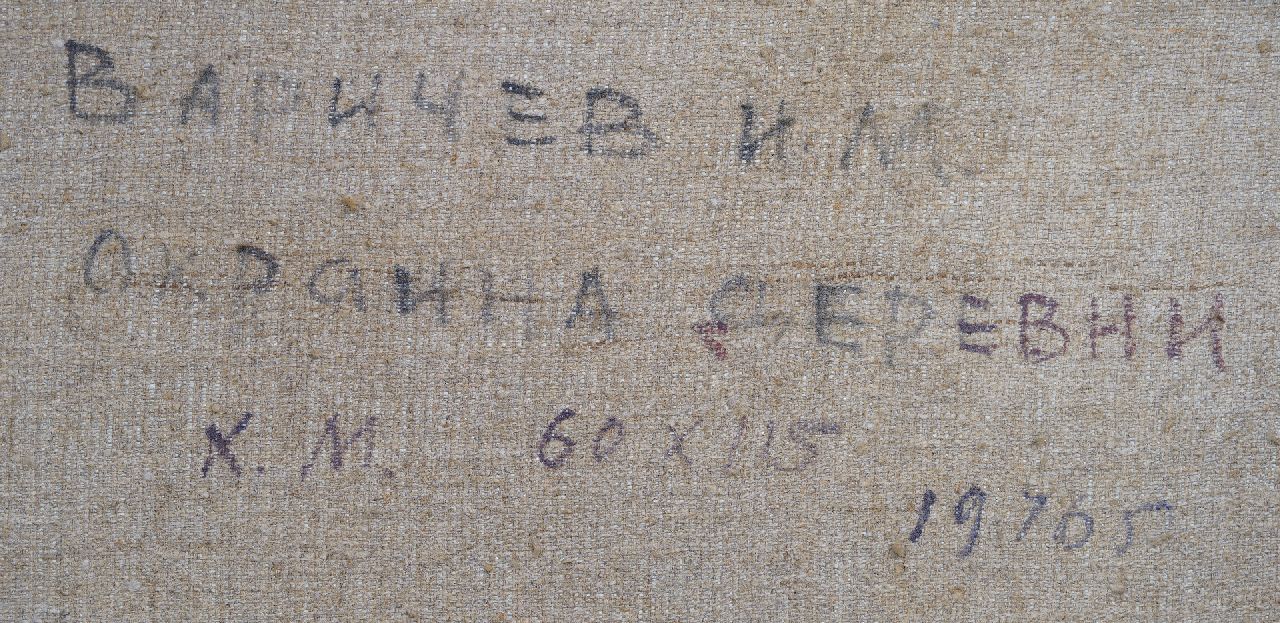 ВАРИЧЕВ И.М
ОКРаИНА ДЕРЕВНИ
Х. М. 60 х 115
1976 г